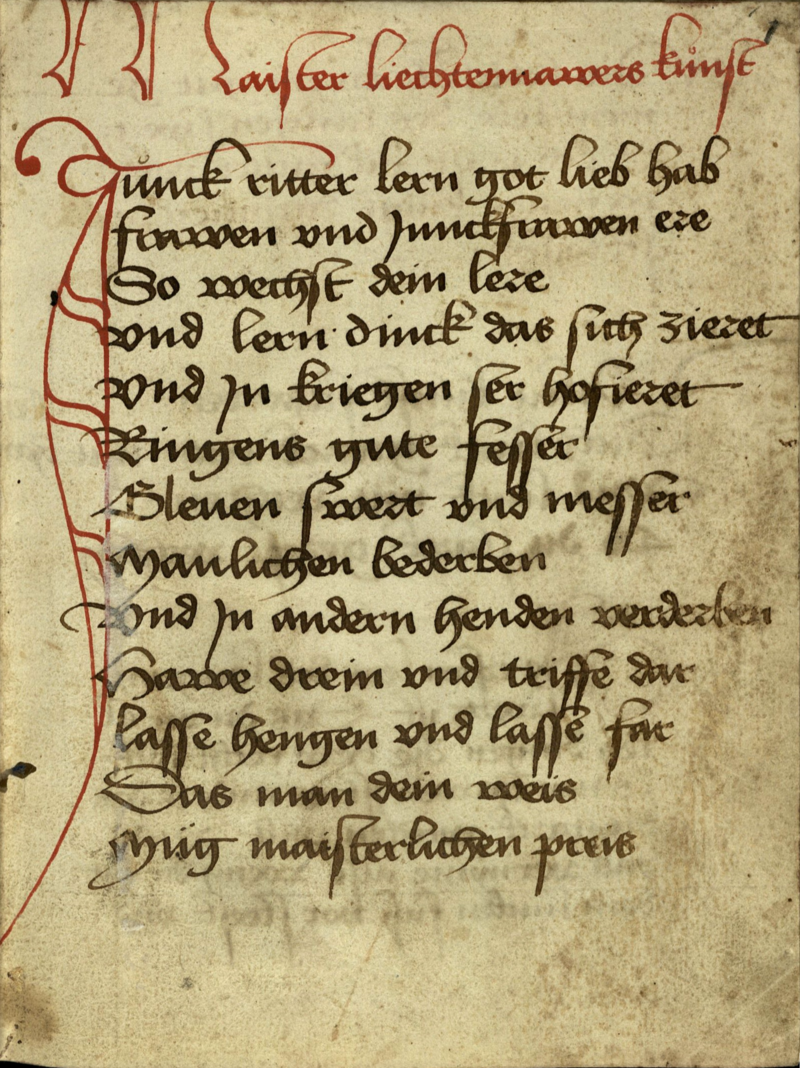 Maister liechtennawers kůnst
Jůnck ritter lern got lieb hab
frawen vnd Junckfrawen ere
So wechst dein lere
vnd lern dinck das sich zieret
vnd Jn kriegen ser hofieret
Ringens gute fesser
Gleuen swert vnd messer
Manlichen bederben
vnd Jn andern henden verderben
Hawe drein vnd triffe dar
lasse hengen vnd lasse far
Das man dein weis
Müg maisterlichen preis